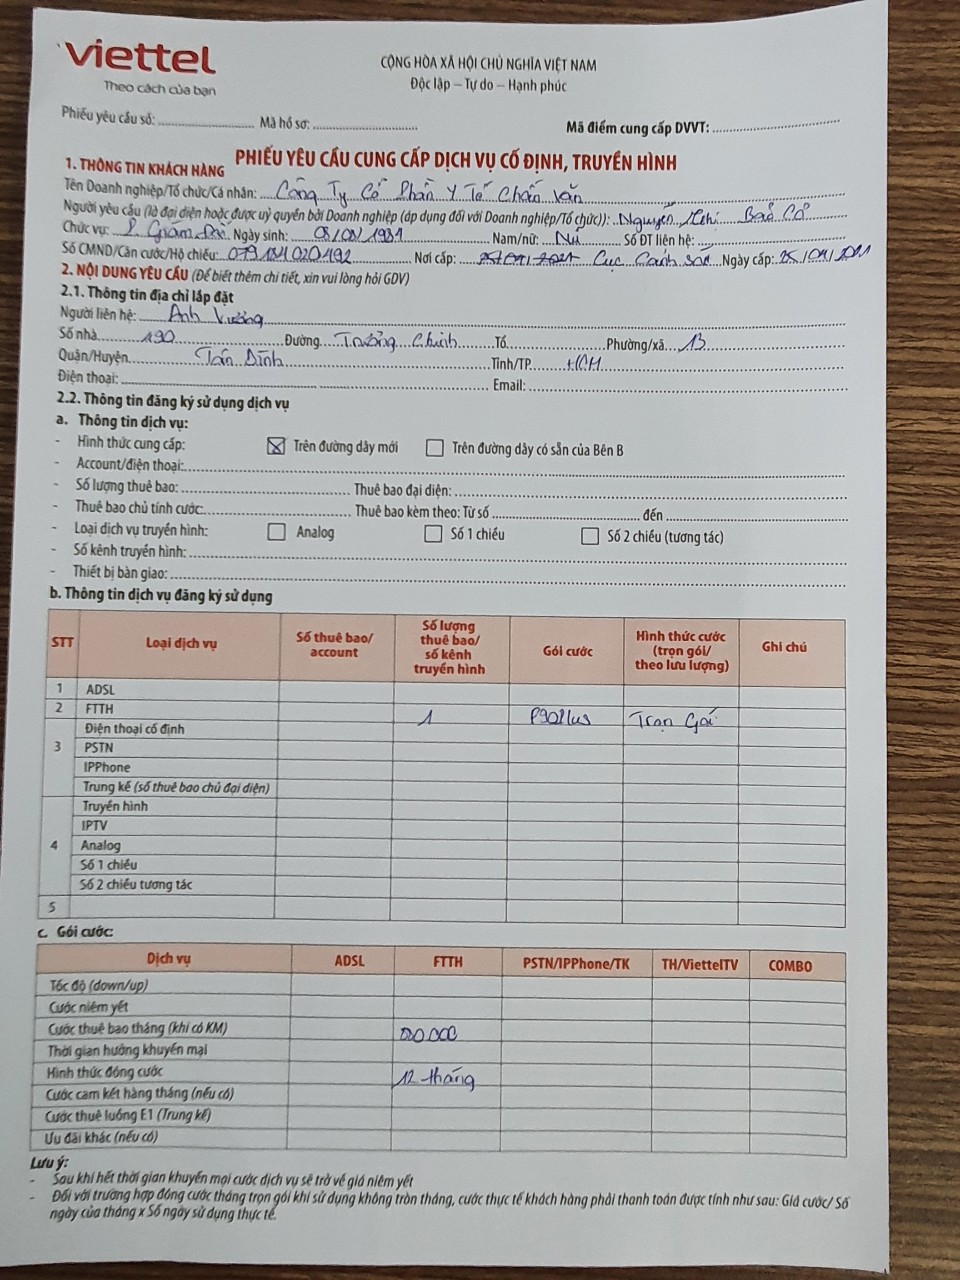 viettel
Theo cách của bạn
CỘNG HÒA XÃ HỘI CHỦ NGHĨA VIỆT NAM
Độc lập – Tự do – Hạnh phúc
Phiếu yêu cầu số: Mã hồ sơ:
Mã điểm cung cấp DVVT:
PHIẾU YÊU CẦU CUNG CẤP DỊCH VỤ CỐ ĐỊNH, TRUYỀN HÌNH
1. THÔNG TIN KHÁCH HÀNG
Tên Doanh nghiệp/Tổ chức/Cá nhân: Công Ty Cổ Phần Y Tế Chấn Văn
Người yêu cầu (là đại diện hoặc được uỷ quyền bởi Doanh nghiệp (áp dụng đối với Doanh nghiệp/Tổ chức)): Nguyễn Bảo
Chức vụ: Giám Đốc Ngày sinh: 1981 Nam/nữ: Nữ Số ĐT liên hệ:
Số CMND/Căn cước/Hộ chiếu: Nơi cấp: Cục Cảnh sát Ngày cấp:
2. NỘI DUNG YÊU CẦU (Để biết thêm chi tiết, xin vui lòng hỏi GDV)
2.1. Thông tin địa chỉ lắp đặt
Người liên hệ: Anh Vương
Số nhà 190 Đường Trường Chinh Tổ Phường/xã 13
Quận/Huyện Tân Bình Tỉnh/TP HCM
Điện thoại: Email:
2.2. Thông tin đăng ký sử dụng dịch vụ
a. Thông tin dịch vụ:
- Hình thức cung cấp: Trên đường dây mới Trên đường dây có sẵn của Bên B
- Account/điện thoại:
- Số lượng thuê bao: Thuê bao đại diện:
- Thuê bao chủ tính cước: Thuê bao kèm theo: Từ số đến
- Loại dịch vụ truyền hình: Analog Số 1 chiều Số 2 chiều (tương tác)
- Số kênh truyền hình:
- Thiết bị bàn giao:
b. Thông tin dịch vụ đăng ký sử dụng
STT Loại dịch vụ Số thuê bao/ account Số lượng thuê bao/ số kênh truyền hình Gói cước Hình thức cước (trọn gói/ theo lưu lượng) Ghi chú
1 ADSL
2 FTTH 1 Trọn Gói
Điện thoại cố định
3 PSTN
IPPhone
Trung kế (số thuê bao chủ đại diện)
Truyền hình
IPTV
4 Analog
Số 1 chiều
Số 2 chiều tương tác
5
c. Gói cước:
Dịch vụ ADSL FTTH PSTN/IPPhone/TK TH/ViettelTV COMBO
Tốc độ (down/up)
Cước niêm yết
Cước thuê bao tháng (khi có KM)
Thời gian hưởng khuyến mại
Hình thức đóng cước 12 tháng
Cước cam kết hàng tháng (nếu có)
Cước thuê luồng E1 (Trung kế)
Ưu đãi khác (nếu có)
Lưu ý:
- Sau khi hết thời gian khuyến mại cước dịch vụ sẽ trở về giá niêm yết
- Đối với trường hợp đóng cước tháng trọn gói khi sử dụng không tròn tháng, cước thực tế khách hàng phải thanh toán được tính như sau: Giá cước/ Số
ngày của tháng x Số ngày sử dụng thực tế.